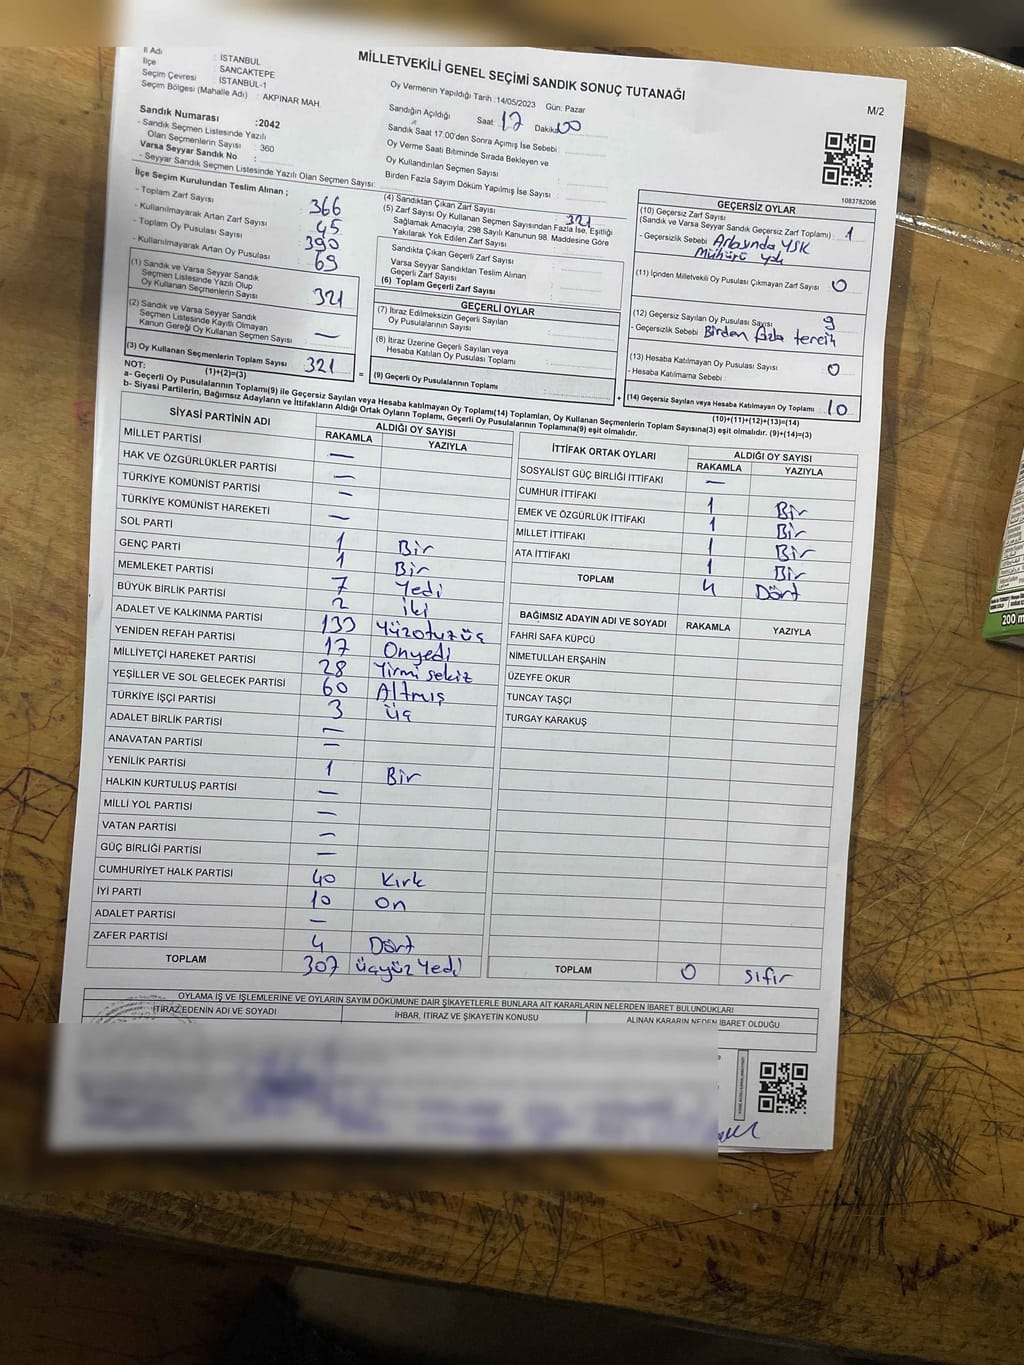 MİLLETVEKİLİ GENEL SEÇİMİ SANDIK SONUÇ TUTANAĞI
M/2
İl Adı : İSTANBUL
İlçe : SANCAKTEPE
Seçim Çevresi : İSTANBUL-1
Seçim Bölgesi (Mahalle Adı) : AKPINAR MAH.
Sandık Numarası :2042
- Sandık Seçmen Listesinde Yazılı Olan Seçmenlerin Sayısı : 360
Varsa Seyyar Sandık No :
- Seyyar Sandık Seçmen Listesinde Yazılı Olan Seçmen Sayısı:
Oy Vermenin Yapıldığı Tarih :14/05/2023 Gün: Pazar
Sandığın Açıldığı Saat : 17 Dakika: 00
Sandık Saat 17:00'den Sonra Açılmış İse Sebebi :
Oy Verme Saati Bitiminde Sırada Bekleyen ve
Oy Kullandırılan Seçmen Sayısı :
Birden Fazla Sayım Döküm Yapılmış İse Sayısı :
1083782096
İlçe Seçim Kurulundan Teslim Alınan ;
- Toplam Zarf Sayısı : 366
- Kullanılmayarak Artan Zarf Sayısı : 45
- Toplam Oy Pusulası Sayısı : 390
- Kullanılmayarak Artan Oy Pusulası : 69
(1) Sandık ve Varsa Seyyar Sandık
Seçmen Listesinde Yazılı Olup
Oy Kullanan Seçmenlerin Sayısı : 321
(2) Sandık ve Varsa Seyyar Sandık
Seçmen Listesinde Kayıtlı Olmayan
Kanun Gereği Oy Kullanan Seçmen Sayısı : —
(3) Oy Kullanan Seçmenlerin Toplam Sayısı : 321
(1)+(2)=(3)
(4) Sandıktan Çıkan Zarf Sayısı : 321
(5) Zarf Sayısı Oy Kullanan Seçmen Sayısından Fazla İse, Eşitliği
Sağlamak Amacıyla; 298 Sayılı Kanunun 98. Maddesine Göre
Yakılarak Yok Edilen Zarf Sayısı :
Sandıkta Çıkan Geçerli Zarf Sayısı :
Varsa Seyyar Sandıktan Teslim Alınan
Geçerli Zarf Sayısı :
(6) Toplam Geçerli Zarf Sayısı :
GEÇERLİ OYLAR
(7) İtiraz Edilmeksizin Geçerli Sayılan
Oy Pusulalarının Sayısı :
(8) İtiraz Üzerine Geçerli Sayılan veya
Hesaba Katılan Oy Pusulası Toplamı :
(9) Geçerli Oy Pusulalarının Toplamı :
GEÇERSİZ OYLAR
(10) Geçersiz Zarf Sayısı
(Sandık ve Varsa Seyyar Sandık Geçersiz Zarf Toplamı) : 1
- Geçersizlik Sebebi : Arkasında YSK
Mühürü yok
(11) İçinden Milletvekili Oy Pusulası Çıkmayan Zarf Sayısı : 0
(12) Geçersiz Sayılan Oy Pusulası Sayısı : 9
- Geçersizlik Sebebi : Birden fazla tercih
(13) Hesaba Katılmayan Oy Pusulası Sayısı : 0
- Hesaba Katılmama Sebebi :
(14) Geçersiz Sayılan veya Hesaba Katılmayan Oy Toplamı : 10
(10)+(11)+(12)+(13)=(14)
NOT:
a- Geçerli Oy Pusulalarının Toplamı(9) ile Geçersiz Sayılan veya Hesaba katılmayan Oy Toplamı(14) Toplamları, Oy Kullanan Seçmenlerin Toplam Sayısına(3) eşit olmalıdır. (9)+(14)=(3)
b- Siyasi Partilerin, Bağımsız Adayların ve İttifakların Aldığı Ortak Oyların Toplamı, Geçerli Oy Pusulalarının Toplamına(9) eşit olmalıdır.
SİYASİ PARTİNİN ADI ALDIĞI OY SAYISI
RAKAMLA YAZIYLA
MİLLET PARTİSİ —
HAK VE ÖZGÜRLÜKLER PARTİSİ —
TÜRKİYE KOMÜNİST PARTİSİ —
TÜRKİYE KOMÜNİST HAREKETİ —
SOL PARTİ 1 Bir
GENÇ PARTİ 1 Bir
MEMLEKET PARTİSİ 7 Yedi
BÜYÜK BİRLİK PARTİSİ 2 iki
ADALET VE KALKINMA PARTİSİ 133 Yüzotuzüç
YENİDEN REFAH PARTİSİ 17 Onyedi
MİLLİYETÇİ HAREKET PARTİSİ 28 Yirmi sekiz
YEŞİLLER VE SOL GELECEK PARTİSİ 60 Altmış
TÜRKİYE İŞÇİ PARTİSİ 3 üç
ADALET BİRLİK PARTİSİ —
ANAVATAN PARTİSİ —
YENİLİK PARTİSİ 1 Bir
HALKIN KURTULUŞ PARTİSİ —
MİLLİ YOL PARTİSİ —
VATAN PARTİSİ —
GÜÇ BİRLİĞİ PARTİSİ —
CUMHURİYET HALK PARTİSİ 40 Kırk
İYİ PARTİ 10 On
ADALET PARTİSİ —
ZAFER PARTİSİ 4 Dört
TOPLAM 307 üçyüz yedi
İTTİFAK ORTAK OYLARI ALDIĞI OY SAYISI
RAKAMLA YAZIYLA
SOSYALİST GÜÇ BİRLİĞİ İTTİFAKI —
CUMHUR İTTİFAKI 1 Bir
EMEK VE ÖZGÜRLÜK İTTİFAKI 1 Bir
MİLLET İTTİFAKI 1 Bir
ATA İTTİFAKI 1 Bir
TOPLAM 4 Dört
BAĞIMSIZ ADAYIN ADI VE SOYADI RAKAMLA YAZIYLA
FAHRİ SAFA KÜPCÜ
NİMETULLAH ERŞAHİN
ÜZEYFE OKUR
TUNCAY TAŞÇI
TURGAY KARAKUŞ
TOPLAM 0 sıfır
OYLAMA İŞ VE İŞLEMLERİNE VE OYLARIN SAYIM DÖKÜMÜNE DAİR ŞİKAYETLERLE BUNLARA AİT KARARLARIN NELERDEN İBARET BULUNDUKLARI
İTİRAZ EDENİN ADI VE SOYADI İHBAR, İTİRAZ VE ŞİKAYETİN KONUSU ALINAN KARARIN NEDEN İBARET OLDUĞU
200 m